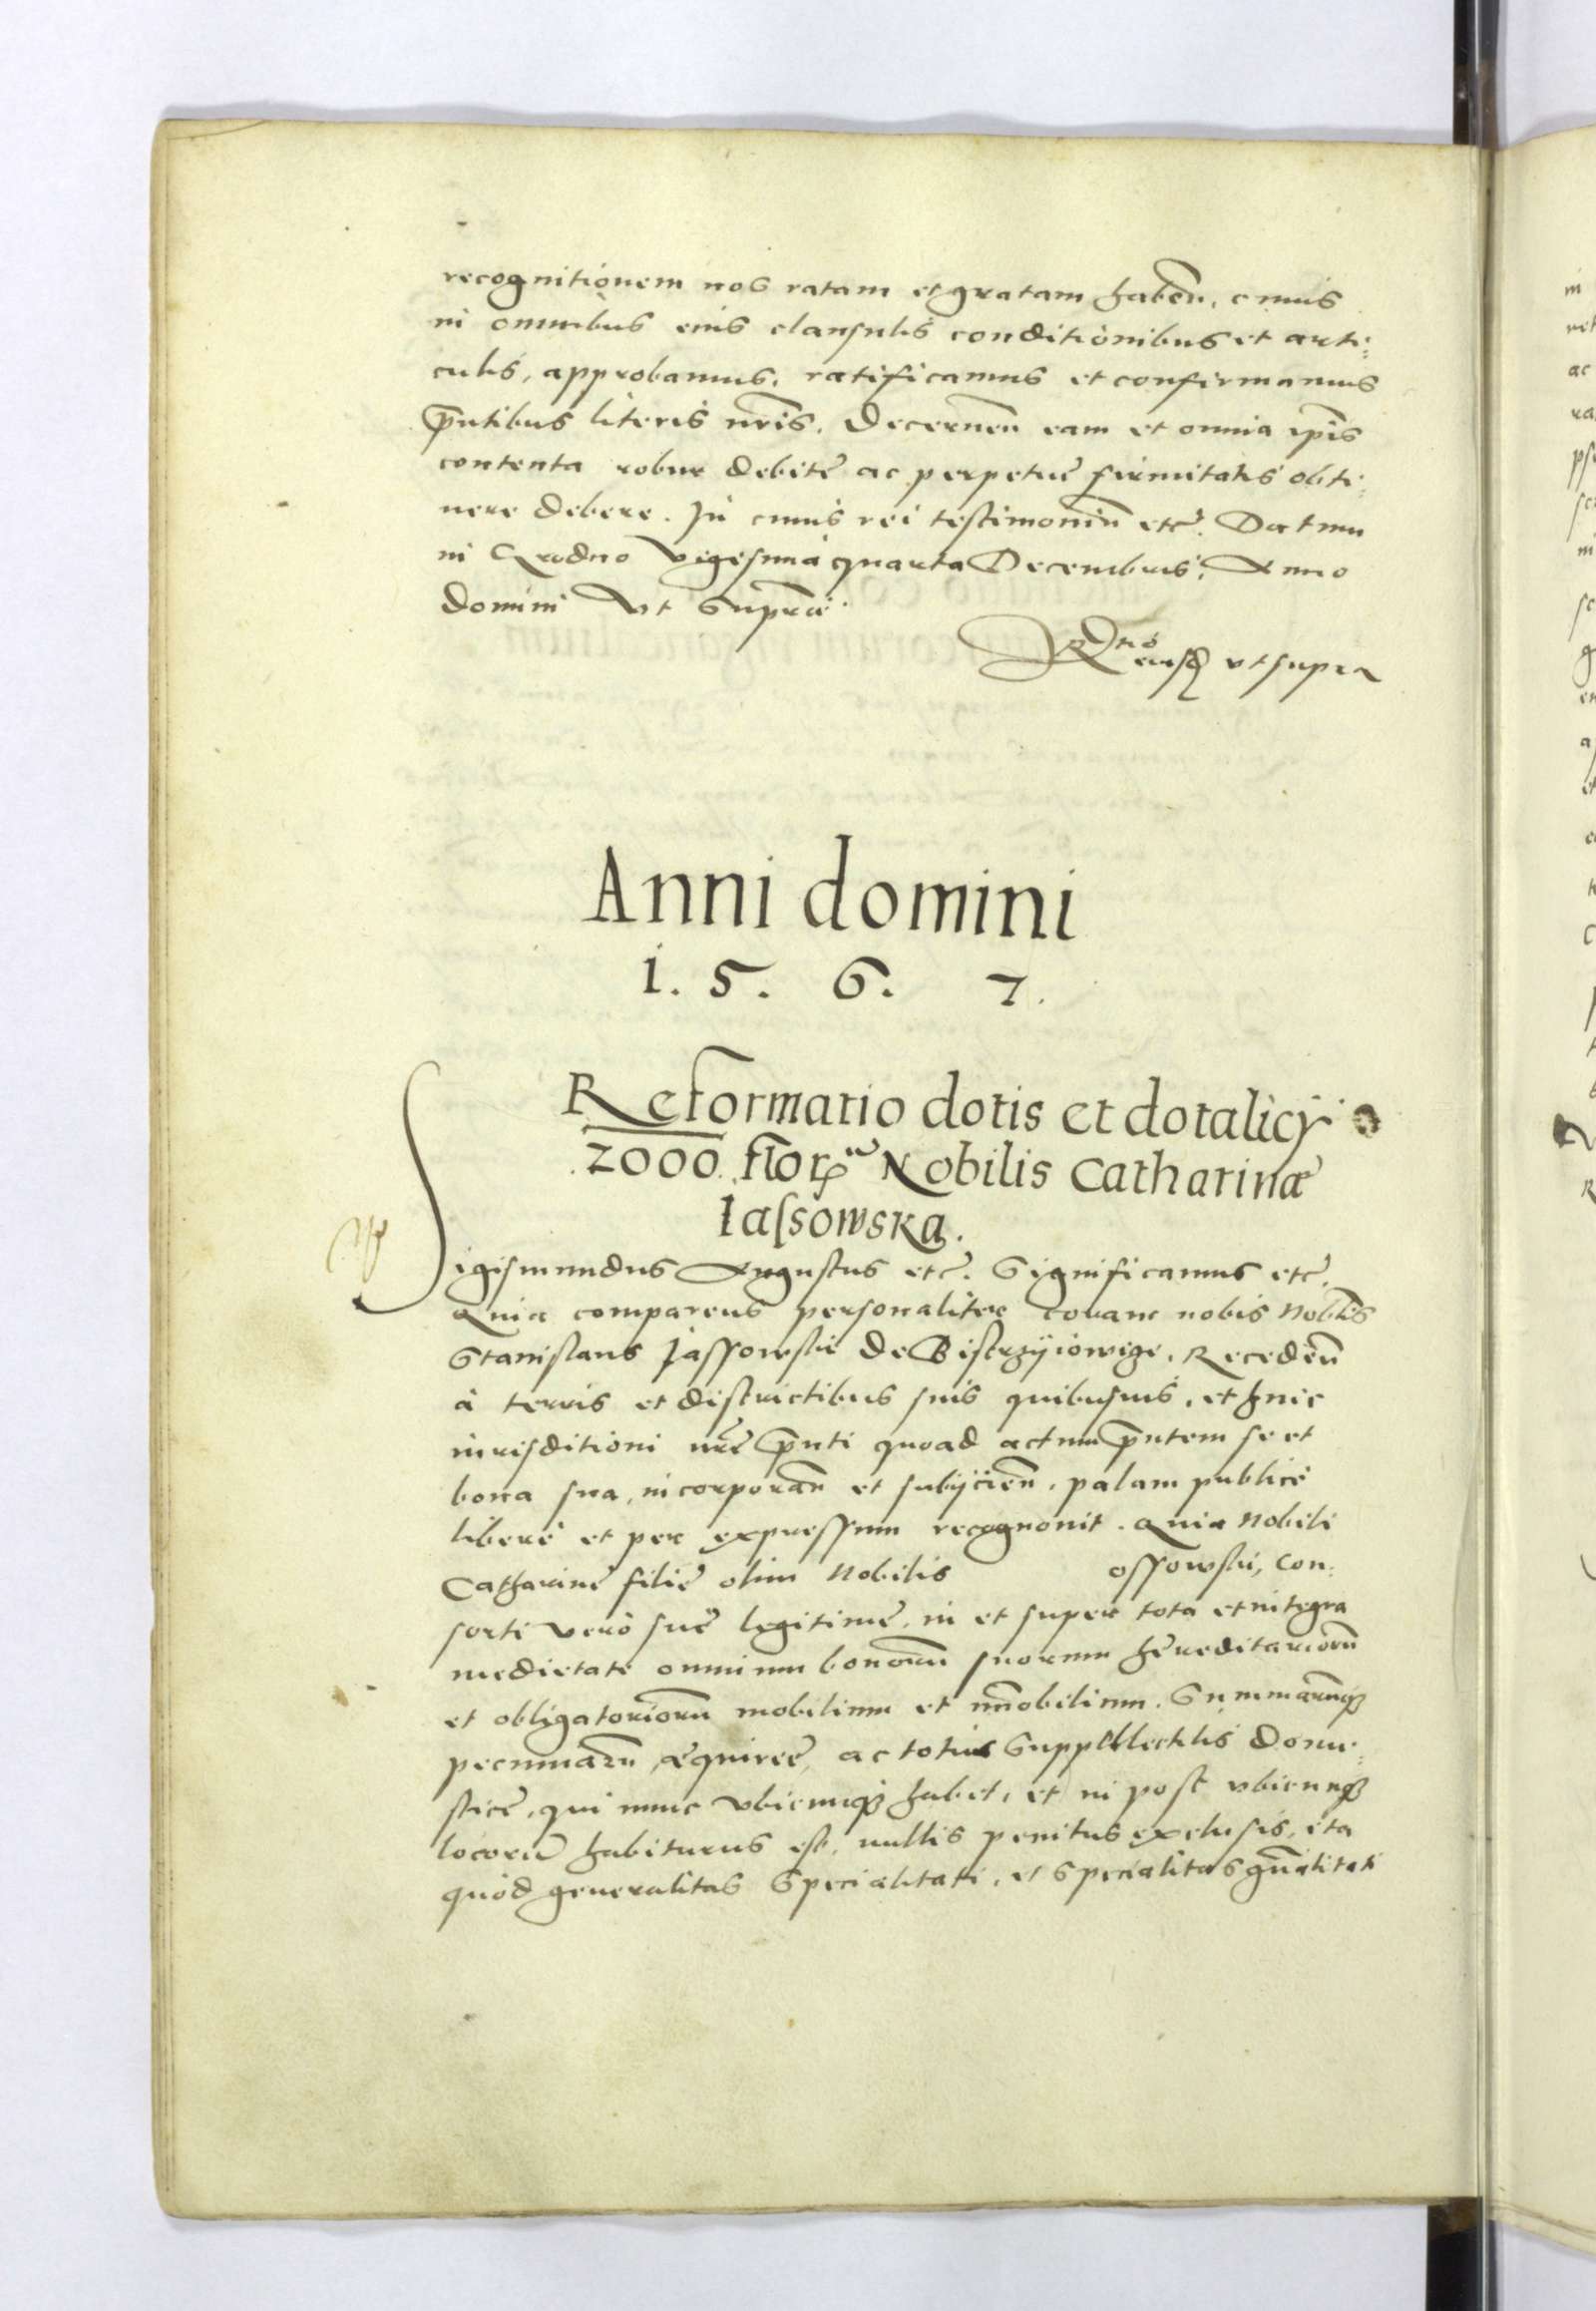 recognitionem nos ratam et gratam habeñ, cuius
in omnibus eius clausulis conditionibus et arti:
culis, approbamus, ratificamus et confirmamus
p̃ntibus literis nr̃is. Decerneñ eam et omnia ip̃is
contenta robur debitę ac perpetuę firmitatis obti:
nere debere. In cuius rei testimoniũ etc. Datum
in Grodno Vigesima quarta Decembris, Anno
domini Vt Supra.
Rela eiusd vt supra
Anni domini
1. 5. 6. 7.
Reformatio dotis et dotalicÿ
2000 flor Nobilis Catharinæ
Iassowska.
Sigismundus Augustus etc. Significamus etc.
Quia comparens personaliter coram nobis Nobilis
Stanislaus Jassowski de Bistrzÿiowize, Recedeñ
à terris et districtibus suis quibusuis, et huic
iurisditioni nr̃ę p̃nti quoad actum p̃ntem se et
bona sua, incorporañ et subÿcieñ, palam publicè
liberè et per expressum recognouit. Quia Nobili
Catharinę filię olim Nobilis ossowski, Con:
sorti verò suę legitimę, in et super tota et integra
medietate omnium bonorũ suorum hęreditariorũ
et obligatoriorũ mobilium et im̃obilium. Summarumqꝫ
pecuniarũ, ac totius Suppellectilis dome:
sticę, qui nunc vbicunqꝫ habet, et in post vbicunqꝫ
locorũ habiturus est, nullis penitus exclusis, ita
quòd generalitas Specialitati, et Specialitas gñalitati